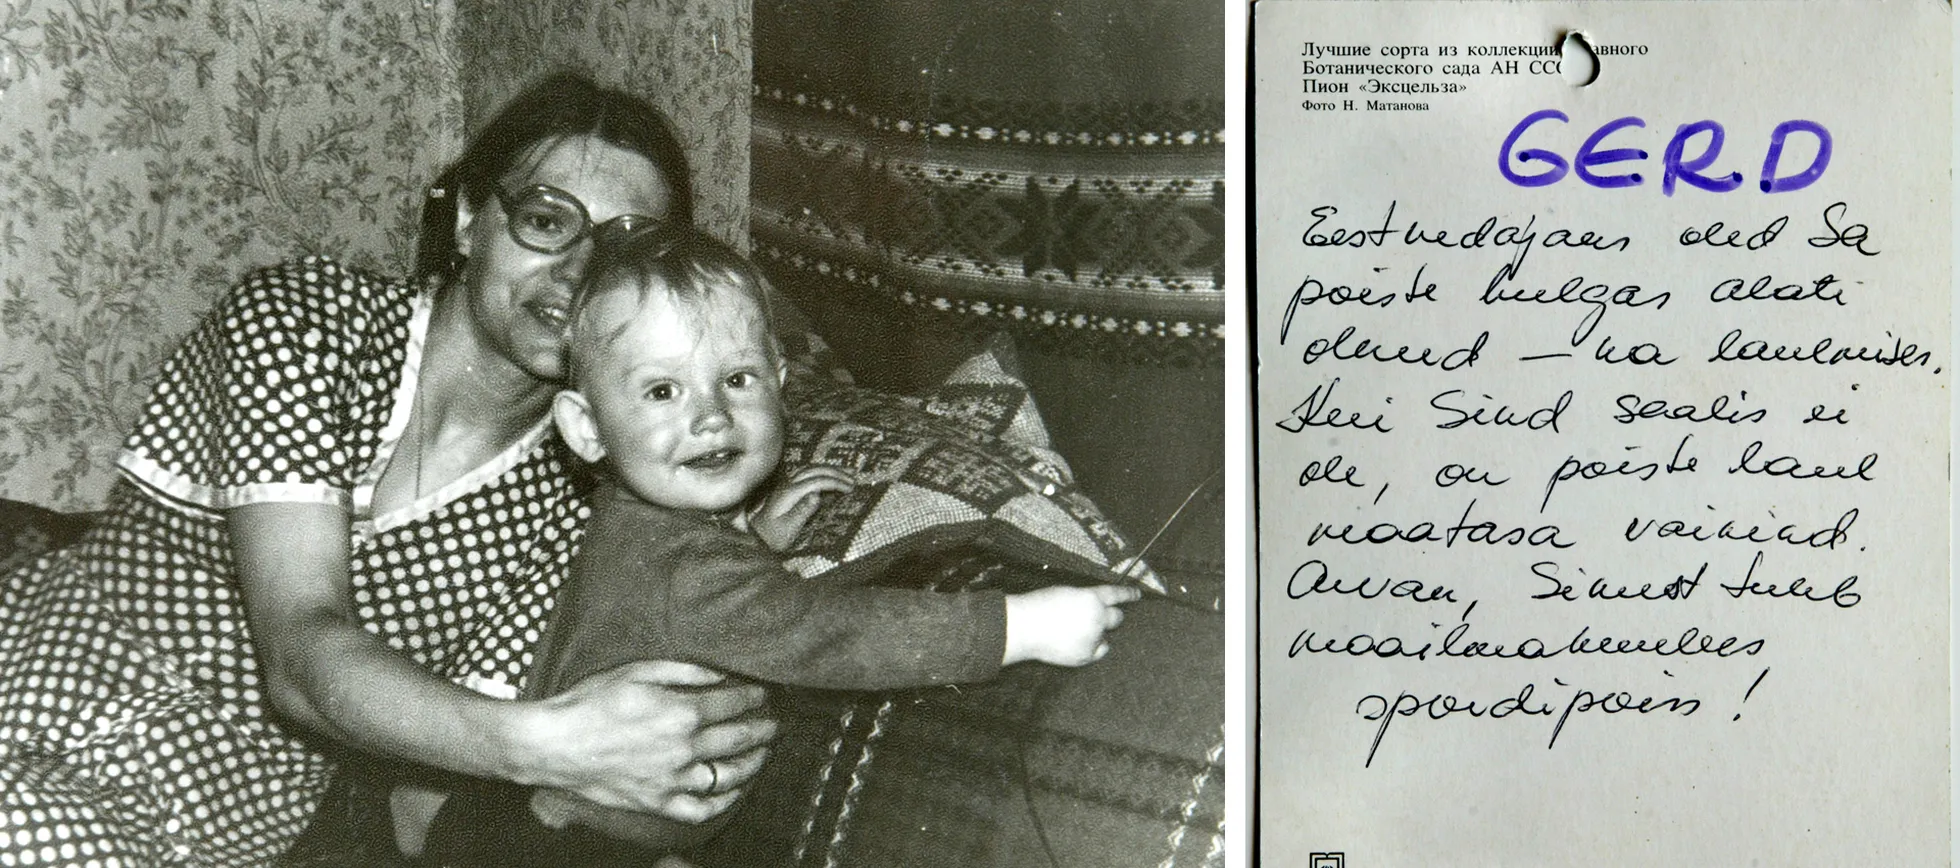 Лучшие сорта из коллекции авного
Ботанического сада АН ССС
Пион «Эксцельза»
Фото Н. Матанова
GERD
Eestvedajaks oled Sa
poiste hulgas alati
olnud – ka laulmises.
Kui Sind saalis ei
ole, on poiste laul
maatasa vaikinud.
Arvan, Sinust tuleb
maailmakuulus
spordipoiss!